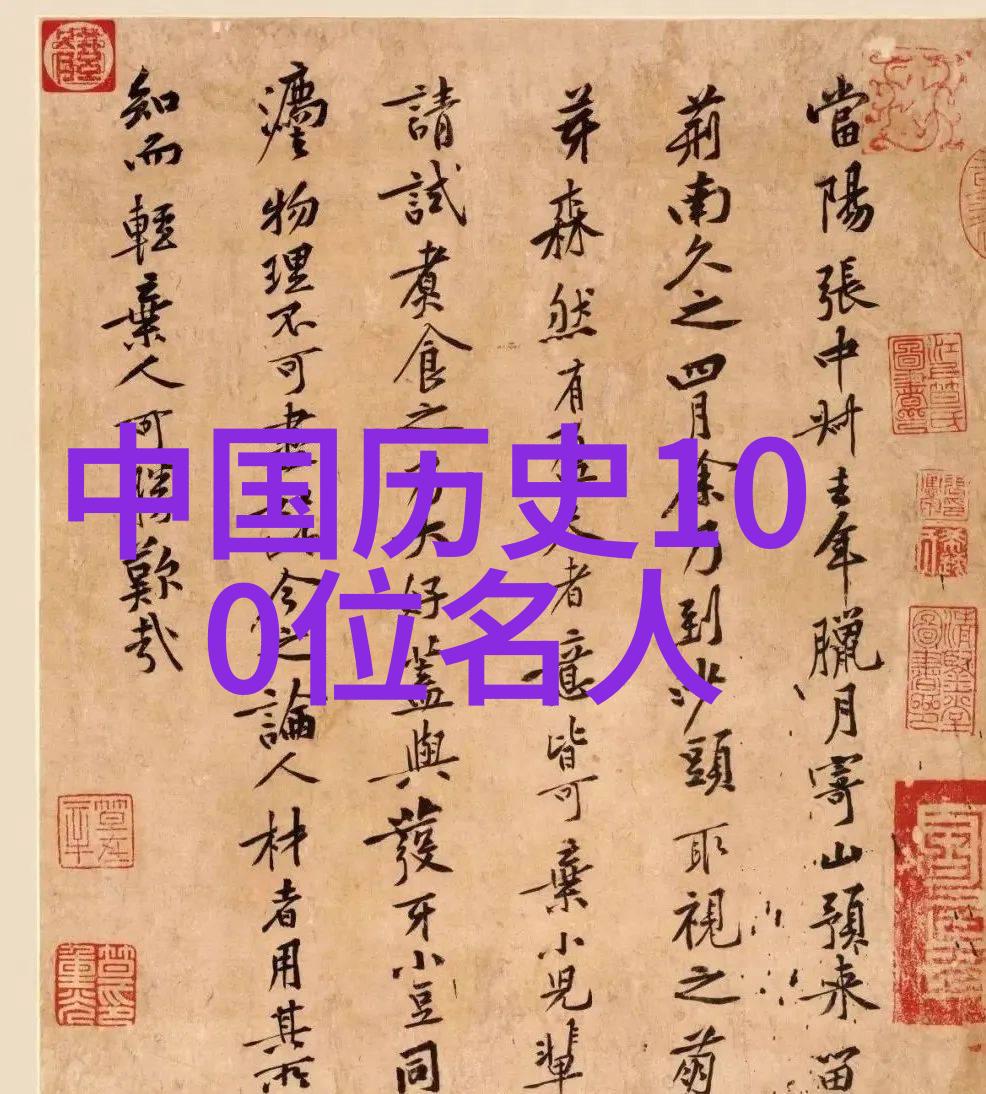 中国历史10
0位名人
當陽張中叔去年臘月寄山預来留
荊南久之四月余乃到沙頭取視之萌
芽森然有者意皆可棄小兒輩
請試煮食之乃大好蓋與發牙小豆同
灋物理不可盡今之論人材者用其所
知而輕棄人可勝歎哉